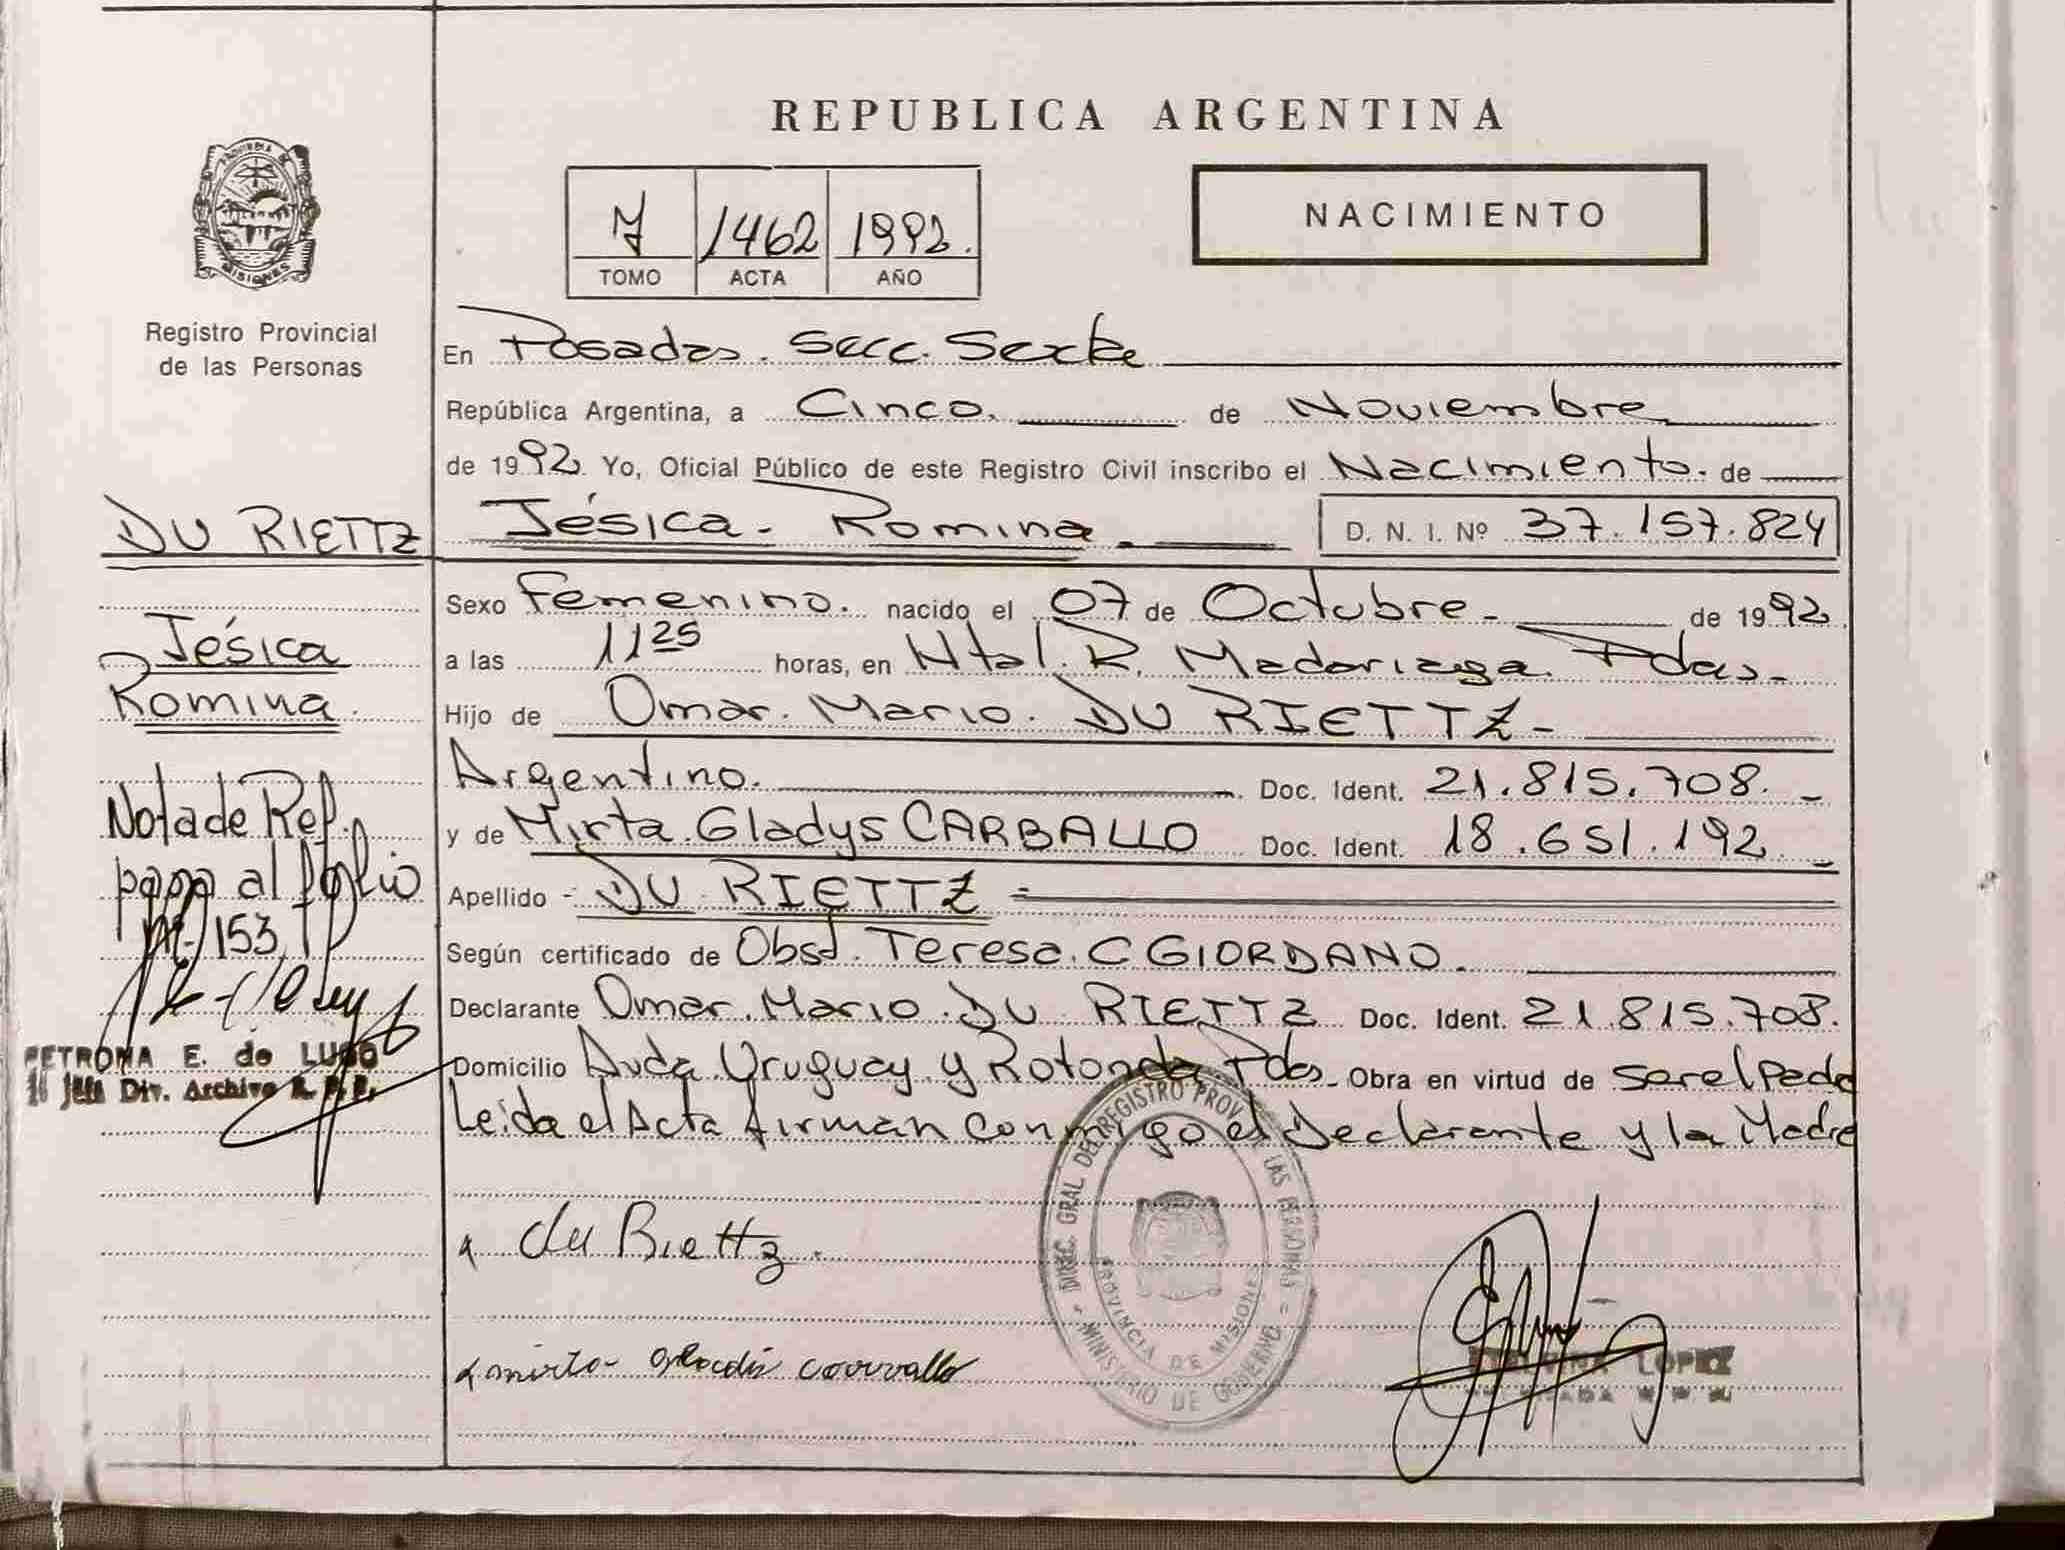 REPUBLICA ARGENTINA
NACIMIENTO
7 1462 1992.
TOMO ACTA AÑO
PROVINCIA DE
MISIONES
Registro Provincial
de las Personas
En Posadas. Secc. Sexta
República Argentina, a Cinco. de Noviembre
de 1992. Yo, Oficial Público de este Registro Civil inscribo el Nacimiento. de
DU RIETTZ
Jésica
Romina.
Nota de Ref.
pasa al folio
Nº 153
PETRONA E. de LUGO
Jefe Div. Archivo R. P. P.
Jésica - Romina - D. N. I. Nº 37.157.824
Sexo Femenino. nacido el 07 de Octubre - de 1992.
a las 11 25 horas, en Htal. R. Madariaga Pdas -
Hijo de Omar. Mario. DU RIETTZ -
Argentino. Doc. Ident. 21.815.708. -
y de Mirta Gladys CARBALLO Doc. Ident. 18.651.192 -
Apellido - DU RIETTZ -
Según certificado de Obst. Teresa. C GIORDANO.
Declarante Omar. Mario. DU RIETTZ Doc. Ident. 21.815.708.
Domicilio Avda. Uruguay y Rotonda Pdas - Obra en virtud de ser el Padre
Leida el Acta firman conmigo el Declarante y la Madre
du Riettz.
mirta gladis carvallo
DIREC. GRAL DEL REGISTRO PROV. DE LAS PERSONAS
PROVINCIA DE MISIONES
- MINISTERIO DE GOBIERNO -
LOPEZ